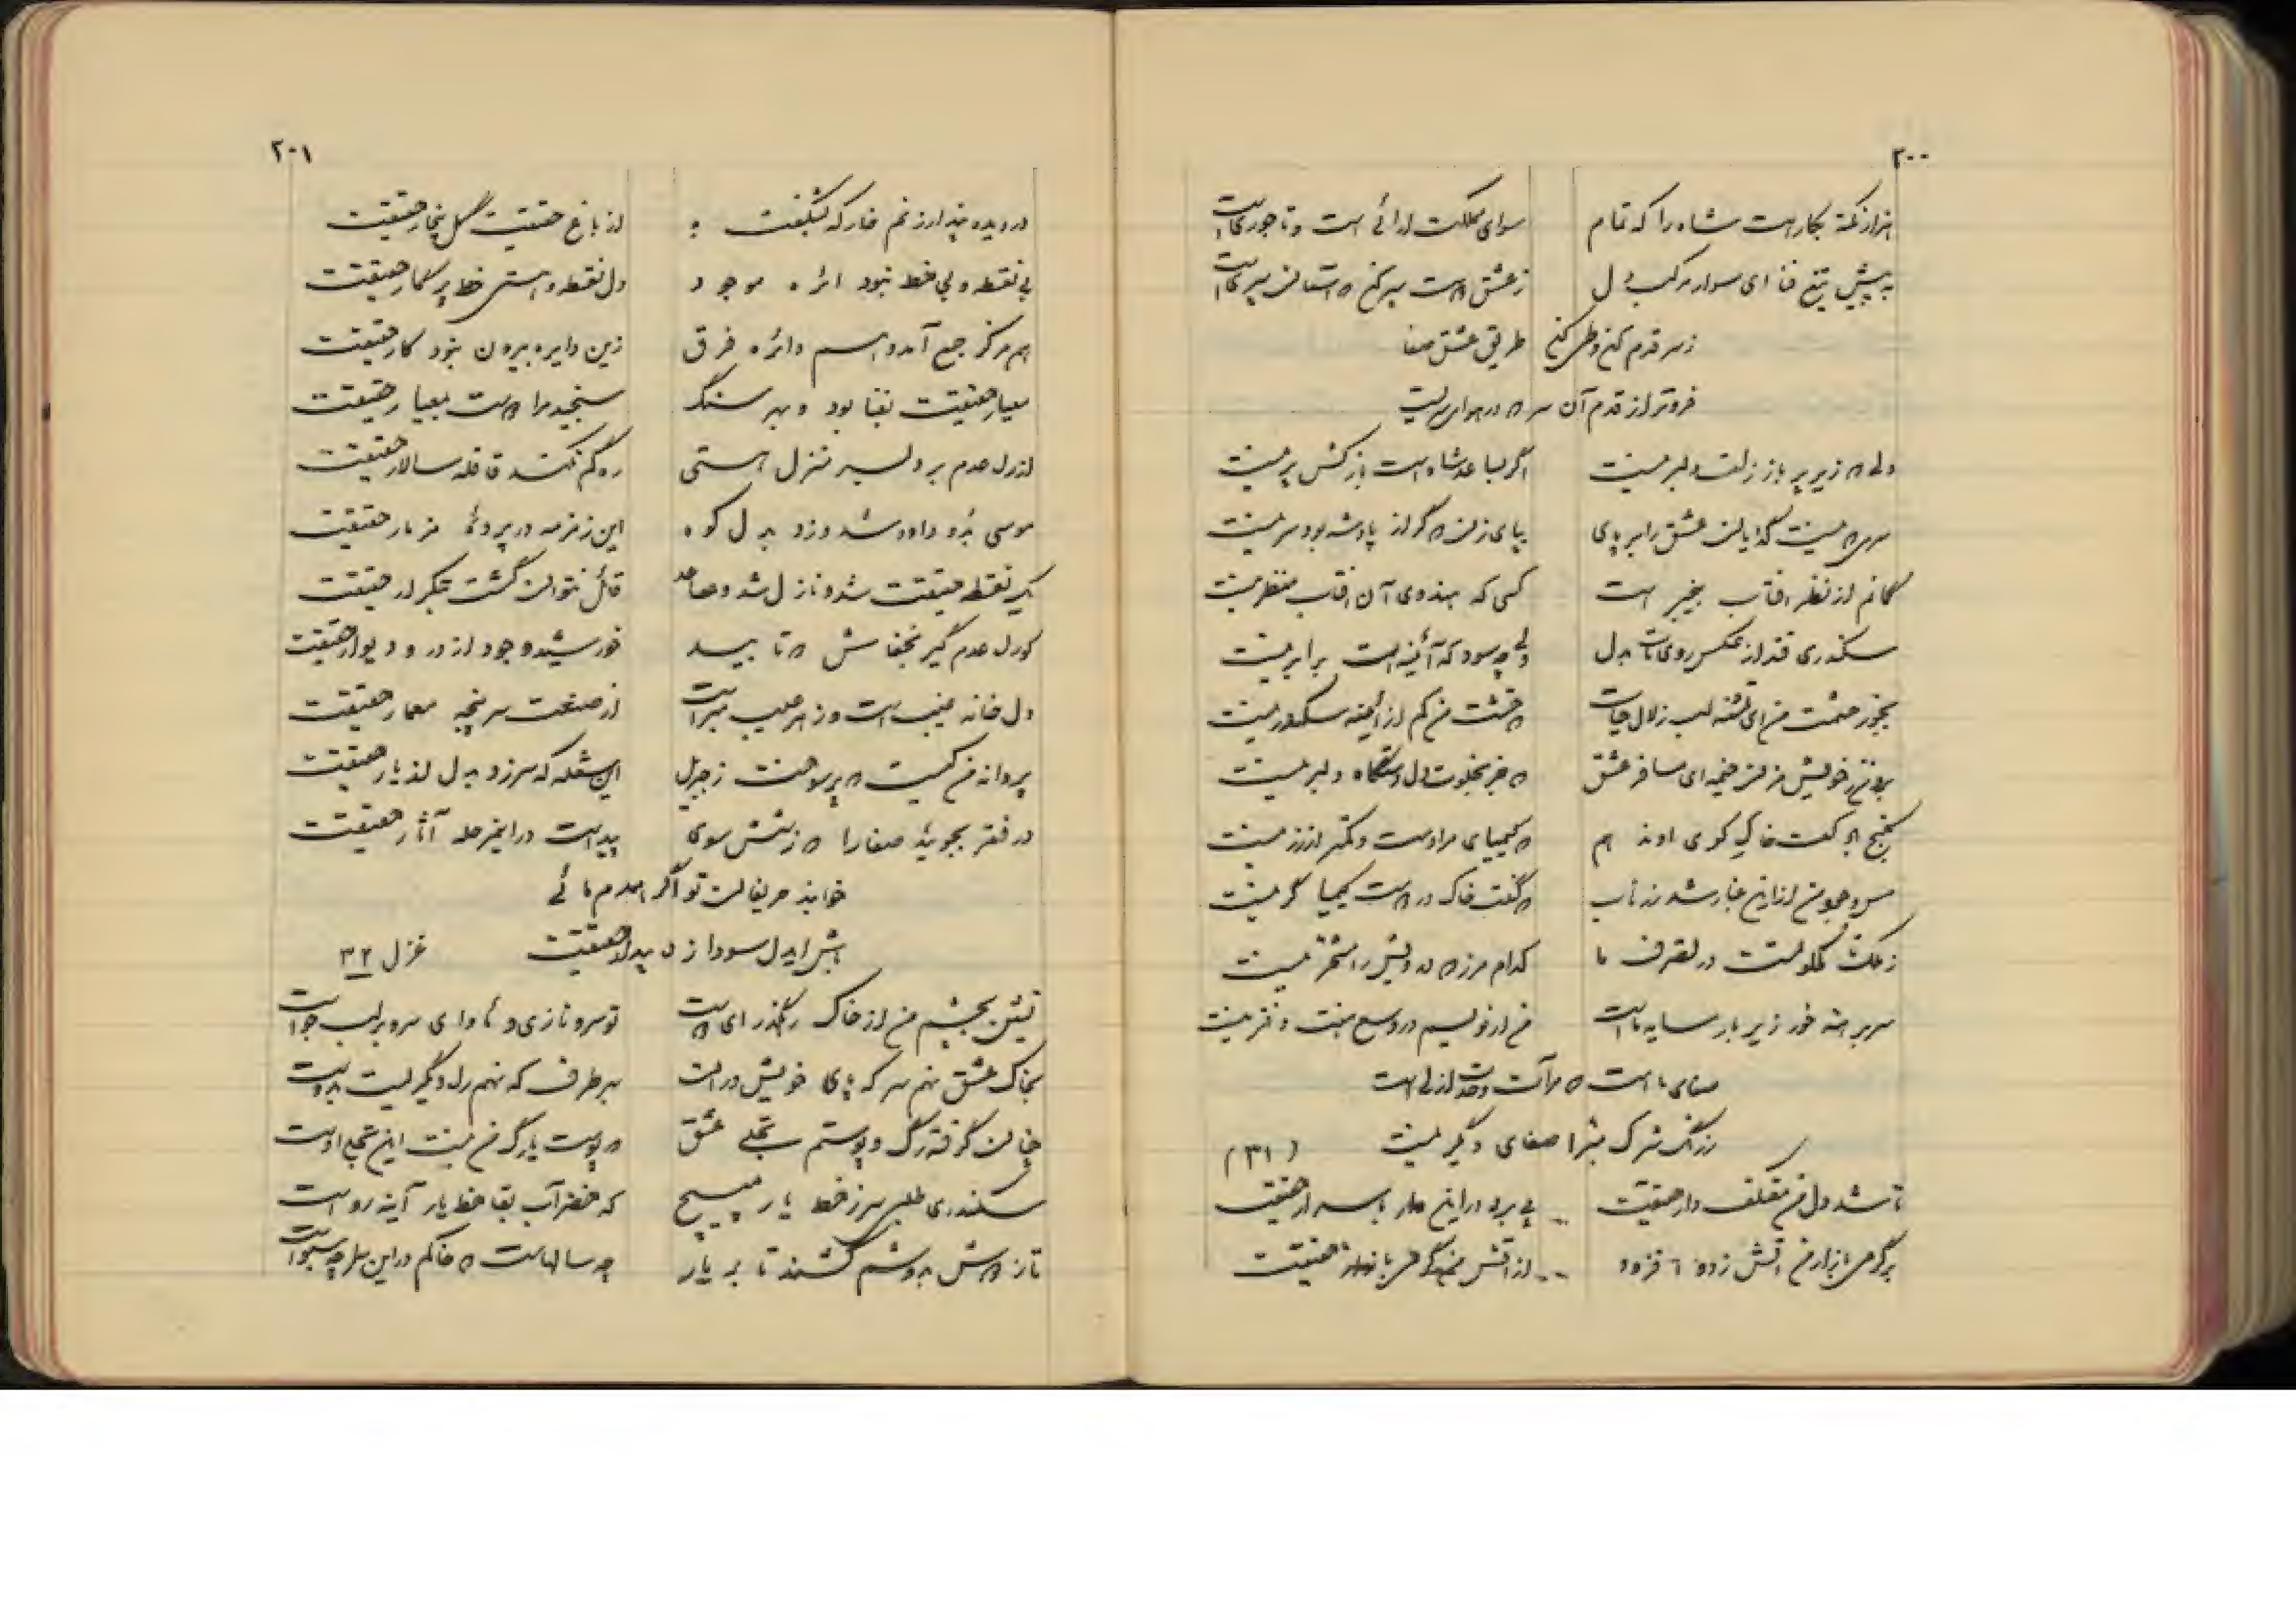 ۲۰۰
هزار نکته بکار است شاه را که تمام سوای مملکت آرائی است و تاجوری است
به پیش تیغ فنا ای سوار مرکب دل ز عشق است
ز سر قدم کن و طی کن طریق عشق صفا
فروتر از قدم آن سر که در هوای سریست
دلی که زیر پر باز زلف دلبر نیست اگر بساعد شاه است باز کش پر نیست
سری که نیست گدایان عشق را بر پای بپای زن که گر از پادشه بود سر نیست
گمانم از نظر آفتاب بیخبر است کسی که هندوی آن آفتاب منظر نیست
سکندری فتد از عکس روی تست بدل ولی چه سود که آئینه‌ات برابر نیست
بجوز چشمت من ای تشنه لب زلال حیات که خشت من کم از آئینه سکندر نیست
برون ز خویش مزن خیمه ای مسافر عشق که جز بخلوت دل دستگاه دلبر نیست
بکف خاک کوی او ندهم که کیمیای مراد است و کمتر از زر نیست
مس وجود من از این غبار شد زر ناب که گفت خاک در دوست کیمیا گر نیست
ز ملک ملکوتست در تصرف ما کدام مرز که درویش را مسخر نیست
سر برهنه خور زیر بار سایه ماست
صفای ما است که مرآت وحدت ازلی است
ز زنگ شرک بتر، صفای دیگر نیست
(۳۱)
تا شد دل من معتکف دار حقیقت پی برد در این دار باسرار حقیقت
بر گرمی بازار من آتش زد و افزود از آتش من گرمی بازار حقیقت
۲۰۱
در دیده پندار زنم خار که بشکفت از باغ حقیقت گل بیخار حقیقت
بی نقطه و بی خط نبود دائره موجود دل نقطه و هستی خط پرگار حقیقت
هم مرکز جمع آمد و هم دائره فرق زین دایره بیرون نبود کار حقیقت
معیار حقیقت بفنا بود و بهر سنگ سنجیده مرا دست بمعیار حقیقت
از راه عدم برد بسر منزل هستی ره گم نکند قافله سالار حقیقت
موسی شد و داود شد و زد بدل کوه این زمزمه در پرده مزمار حقیقت
یک نقطه حقیقت شد و نازل شد و صاعد قائل نتوان گشت بتکرار حقیقت
کو راه عدم گیر خفاش که تابید خورشید وجود از در و دیوار حقیقت
دل خانه غیب است و ز هر عیب مبراست از صنعت سر پنجه معمار حقیقت
پروانه من کیست که پر سوخت ز جبریل این شعله که سر زد بدل از نار حقیقت
در فقر بجوئید صفا را که ز شش سوی پیداست در این مرحله آثار حقیقت
خوابند حریفان تو اگر همدم مائی
باش ای دل سودا زده بیدار حقیقت
غزل ۳۲
نشین بچشم من از خاک رهگذر ای دوست تو سرو نازی و مأوای سرو بر لب جوست
بخاک عشق نهم سر که پای خویش در آن بهر طرف که نهم راه دیگریست بدوست
چنان گرفته رگ و پوستم تجلی عشق که پوست یا رگ من نیست این تجلی اوست
سکندری طلبی سر ز خط یار مپیچ که خضر آب بقا خط یار آینه روست
تا ز دوش بدوشم کشند تا بر یار چه سالهاست که خاکم در این سرا چه سبوست